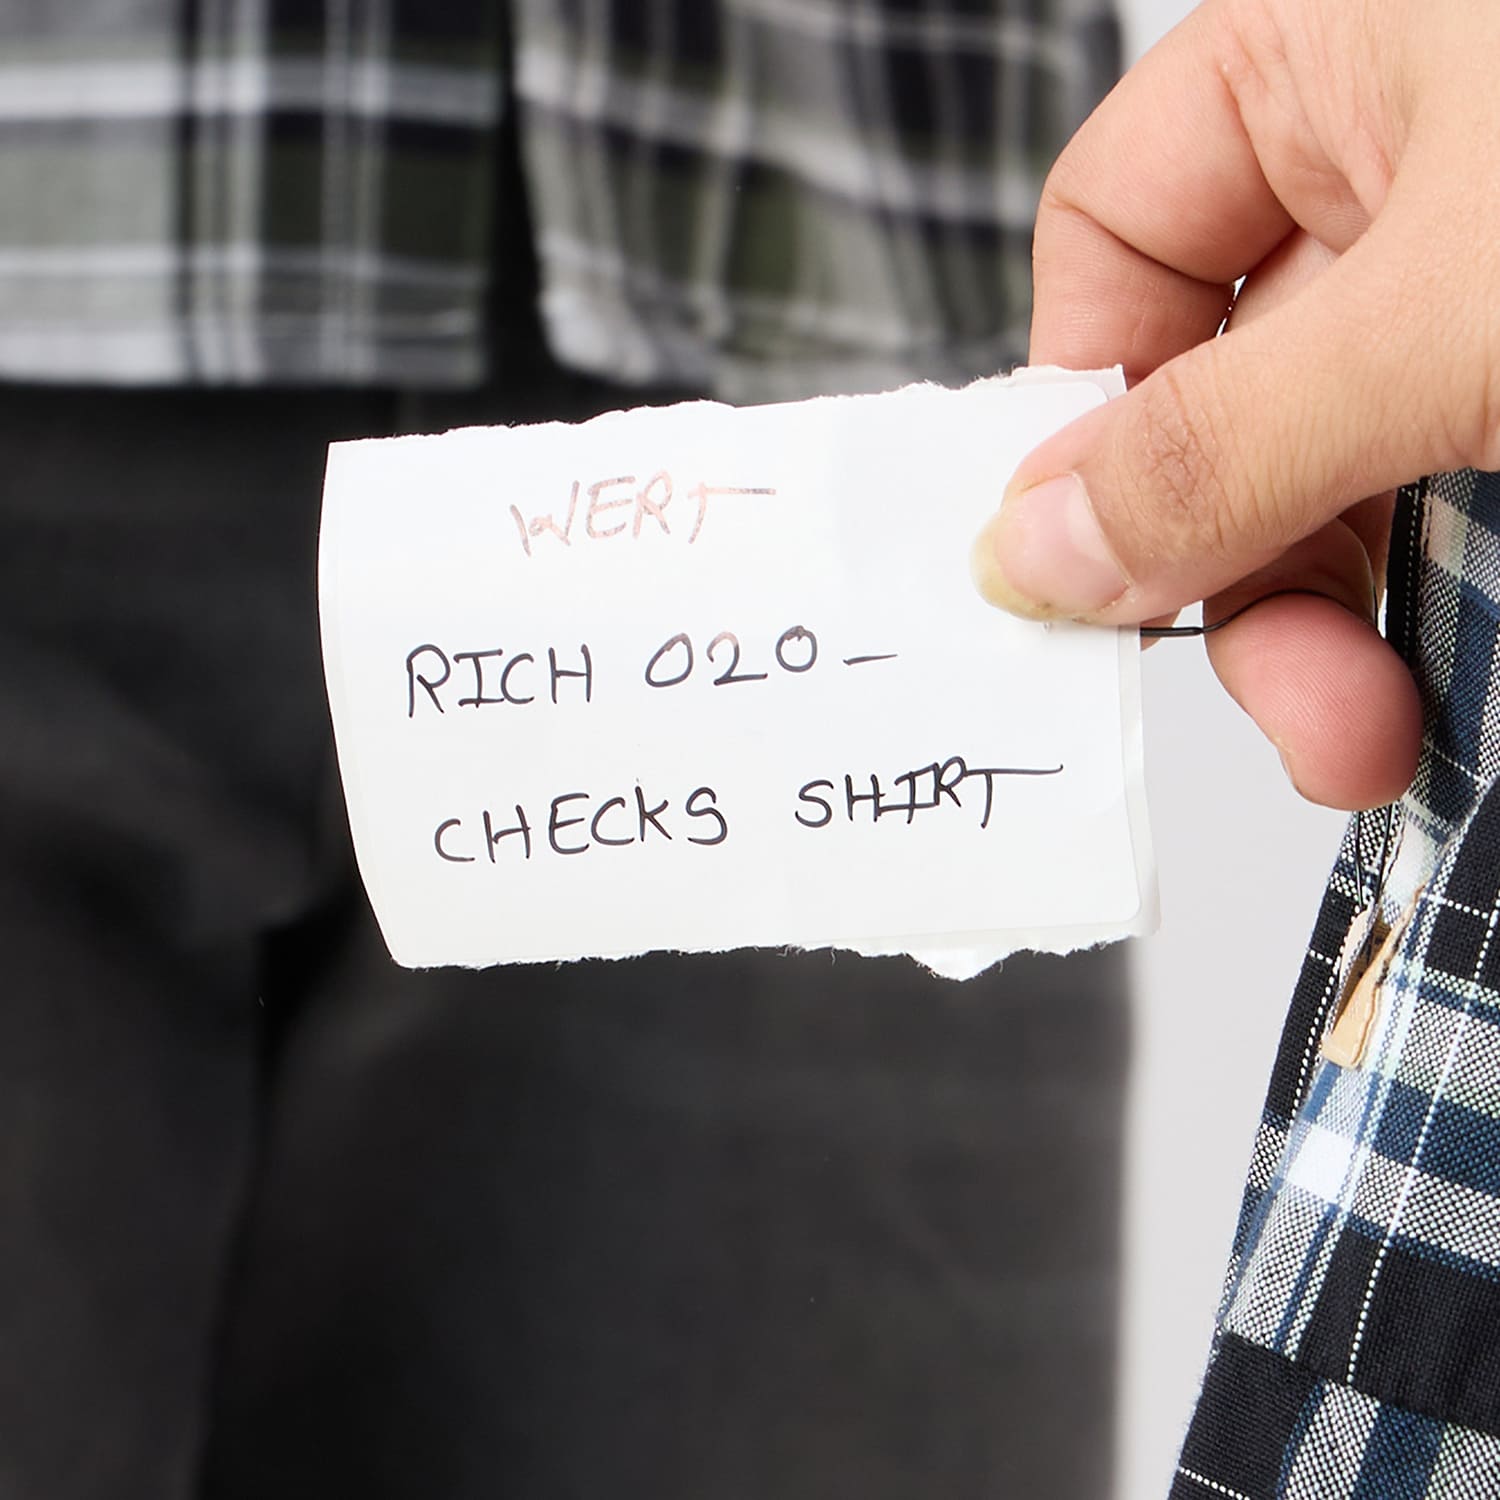 WERT
RICH 020-
CHECKS SHIRT